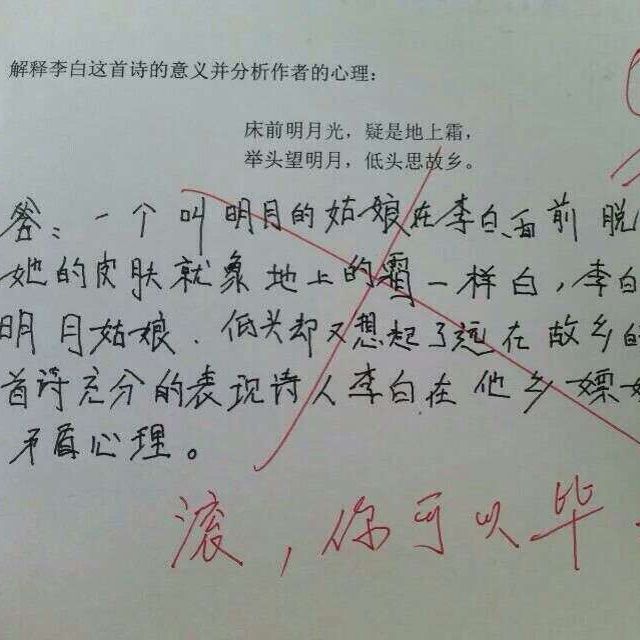 解释李白这首诗的意义并分析作者的心理：
床前明月光，疑是地上霜，
举头望明月，低头思故乡。
答：一个叫明月的姑娘在李白面前脱
她的皮肤就象地上的霜一样白，李白
明月姑娘．低头却又想起了远在故乡的
首诗充分的表现诗人李白在他乡嫖
矛盾心理。
滚，你可以毕